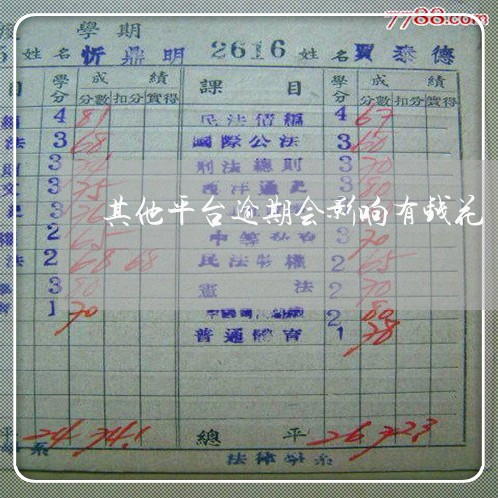 7788.com
學期
姓名 忻鼎明 2616 姓名 賈泰德
目 學分 成績 課目 學分 成績
分數 扣分 實得 分數 扣分 實得
4 81 民法債編 4 67
法 3 68 國際公法 3 60
3 刑法總則 3 70
3 75 西洋通史 3 80
其他平台逾期会影响有钱花
2 65 3 70
法 2 68 68 民法物權 2 65
3 80 憲法 2 70
1 70 2 80
普通體育 1 78
平 24 74.1 總平 26 72.3
系 法律學系